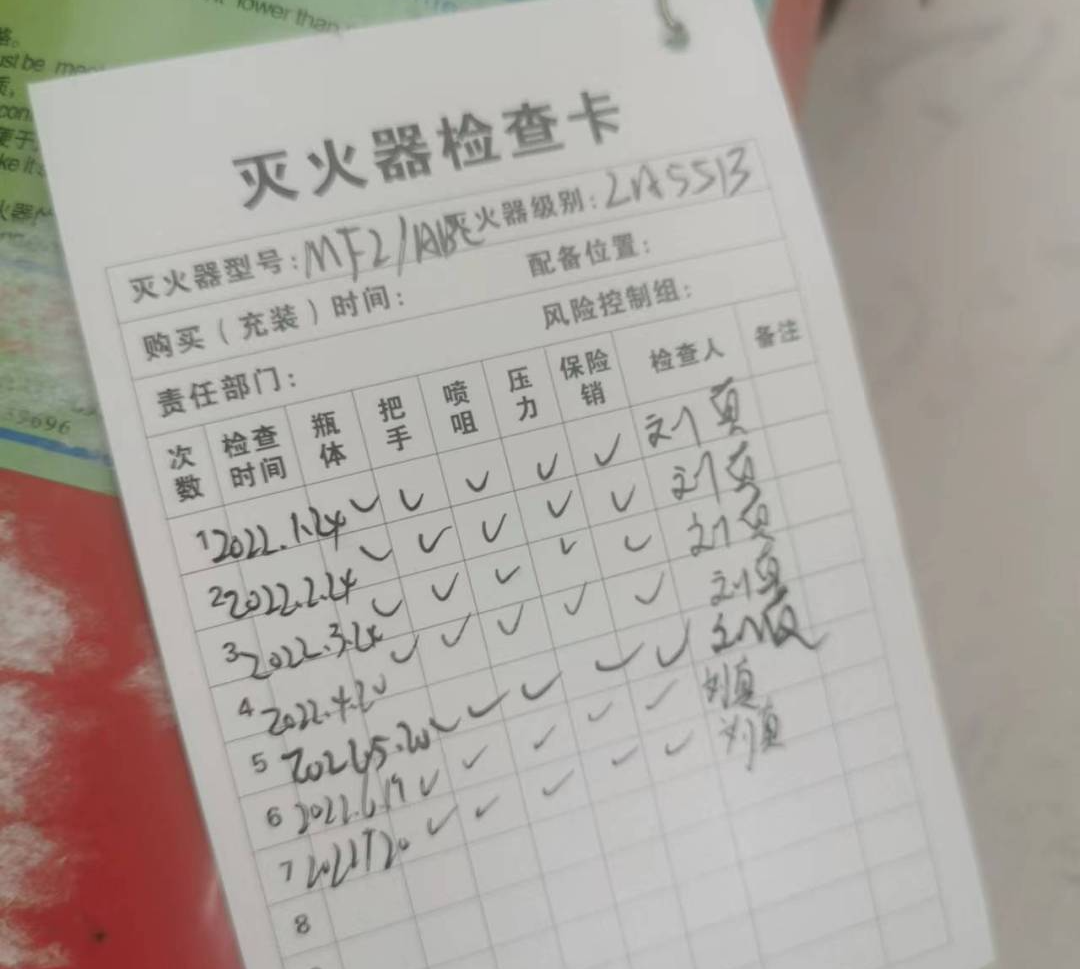 lower than
ust be
con
灭火器检查卡
灭火器型号：MF2/ABC 灭火器级别：
购买（充装）时间： 配备位置：
责任部门： 风险控制组：
次数 检查时间 瓶体 把手 喷咀 压力 保险销 检查人 备注
1 2022.1.24 ✓ ✓ ✓ ✓ ✓ 刘
2 2022.2.24 ✓ ✓ ✓ ✓ ✓ 刘
3 2022.3.24 ✓ ✓ ✓ ✓ ✓ 刘
4 2022.4.20 ✓ ✓ ✓ ✓ ✓ 刘
5 2022.5.20 ✓ ✓ ✓ ✓ ✓ 刘
6 2022.6.19 ✓ ✓ ✓ ✓ ✓ 刘
7 2022.7.20 ✓ ✓ ✓ ✓ ✓ 刘
8